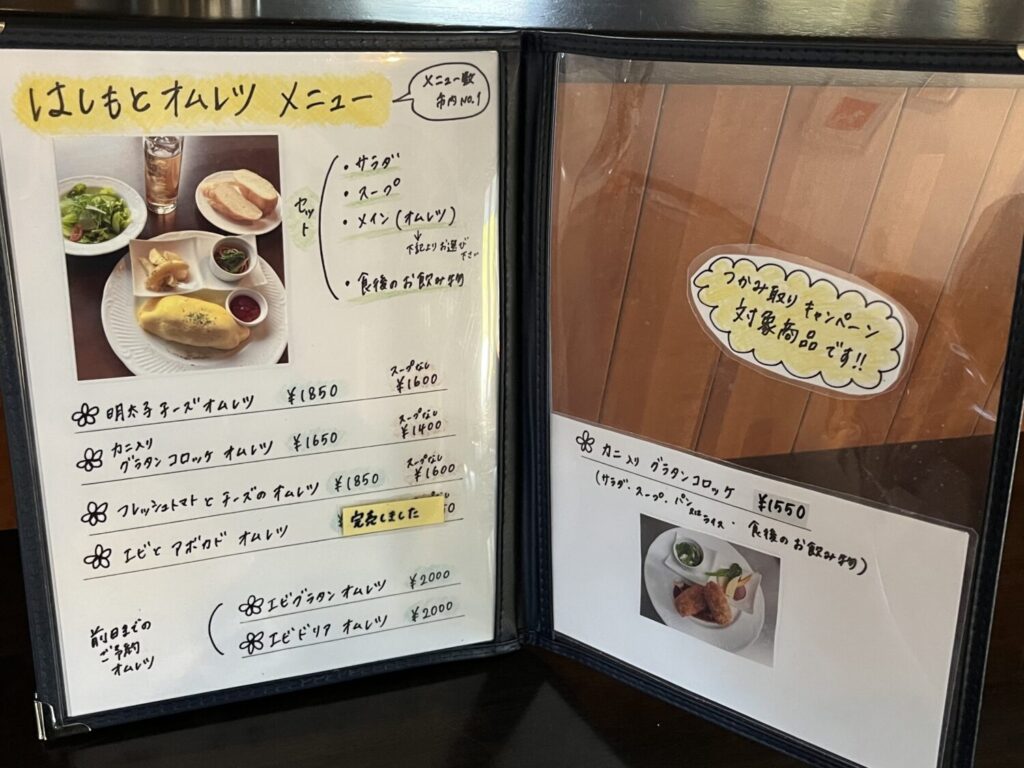 はしもと オムレツ メニュー
メニュー数
市内NO.1
セット
・サラダ
・スープ
・メイン(オムレツ)
↓
下記よりお選び
下さい
・食後のお飲み物
明太子チーズオムレツ ¥1850 スープなし ¥1600
カニ入り
グラタンコロッケ オムレツ ¥1650 スープなし ¥1400
フレッシュトマトとチーズのオムレツ ¥1850 スープなし ¥1600
エビとアボカド オムレツ 完売しました
前日までの
ご予約
オムレツ
エビグラタン オムレツ ¥2000
エビドリア オムレツ ¥2000
つかみ取りキャンペーン
対象商品です!!
カニ入り グラタンコロッケ ¥1550
(サラダ・スープ・パン又はライス・食後のお飲み物)